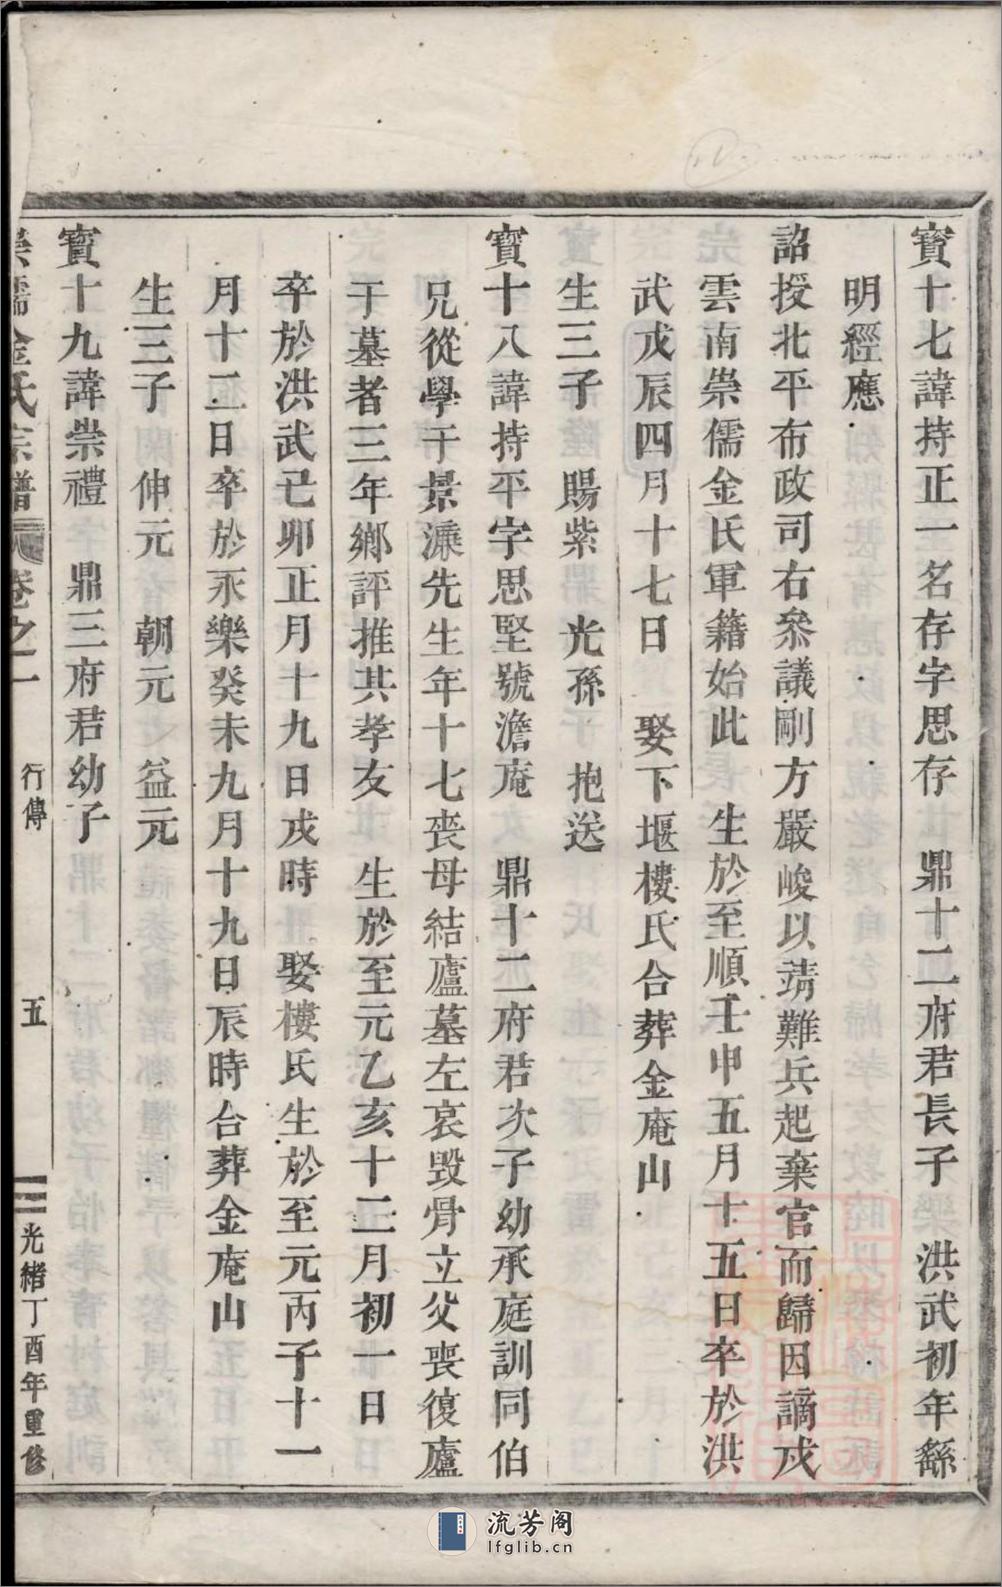 寳十七諱持正一名存字思存　鼎十二府君長子　洪武初年繇
明經應
詔授北平布政司右叅議剛方嚴峻以靖難兵起棄官而歸因謫戍
雲南崇儒金氏軍籍始此　生於至順壬申五月十五日卒於洪
武戊辰四月十七日　娶下堰樓氏合葬金庵山
生三子　賜紫　光孫　抱送
寳十八諱持平字思堅號澹庵　鼎十二府君次子幼承庭訓同伯
兄從學于景濂先生年十七喪母結廬墓左哀毀骨立父喪復廬
于墓者三年鄉評推其孝友　生於至元乙亥十二月初一日
卒於洪武己卯正月十九日戌時　娶樓氏生於至元丙子十一
月十二日卒於永樂癸未九月十九日辰時合葬金庵山
生三子　伸元　朝元　益元
寳十九諱崇禮　鼎三府君幼子
崇儒金氏宗譜　卷之一　行傳　五　光緒丁酉年重修
流芳阁
lfglib.cn